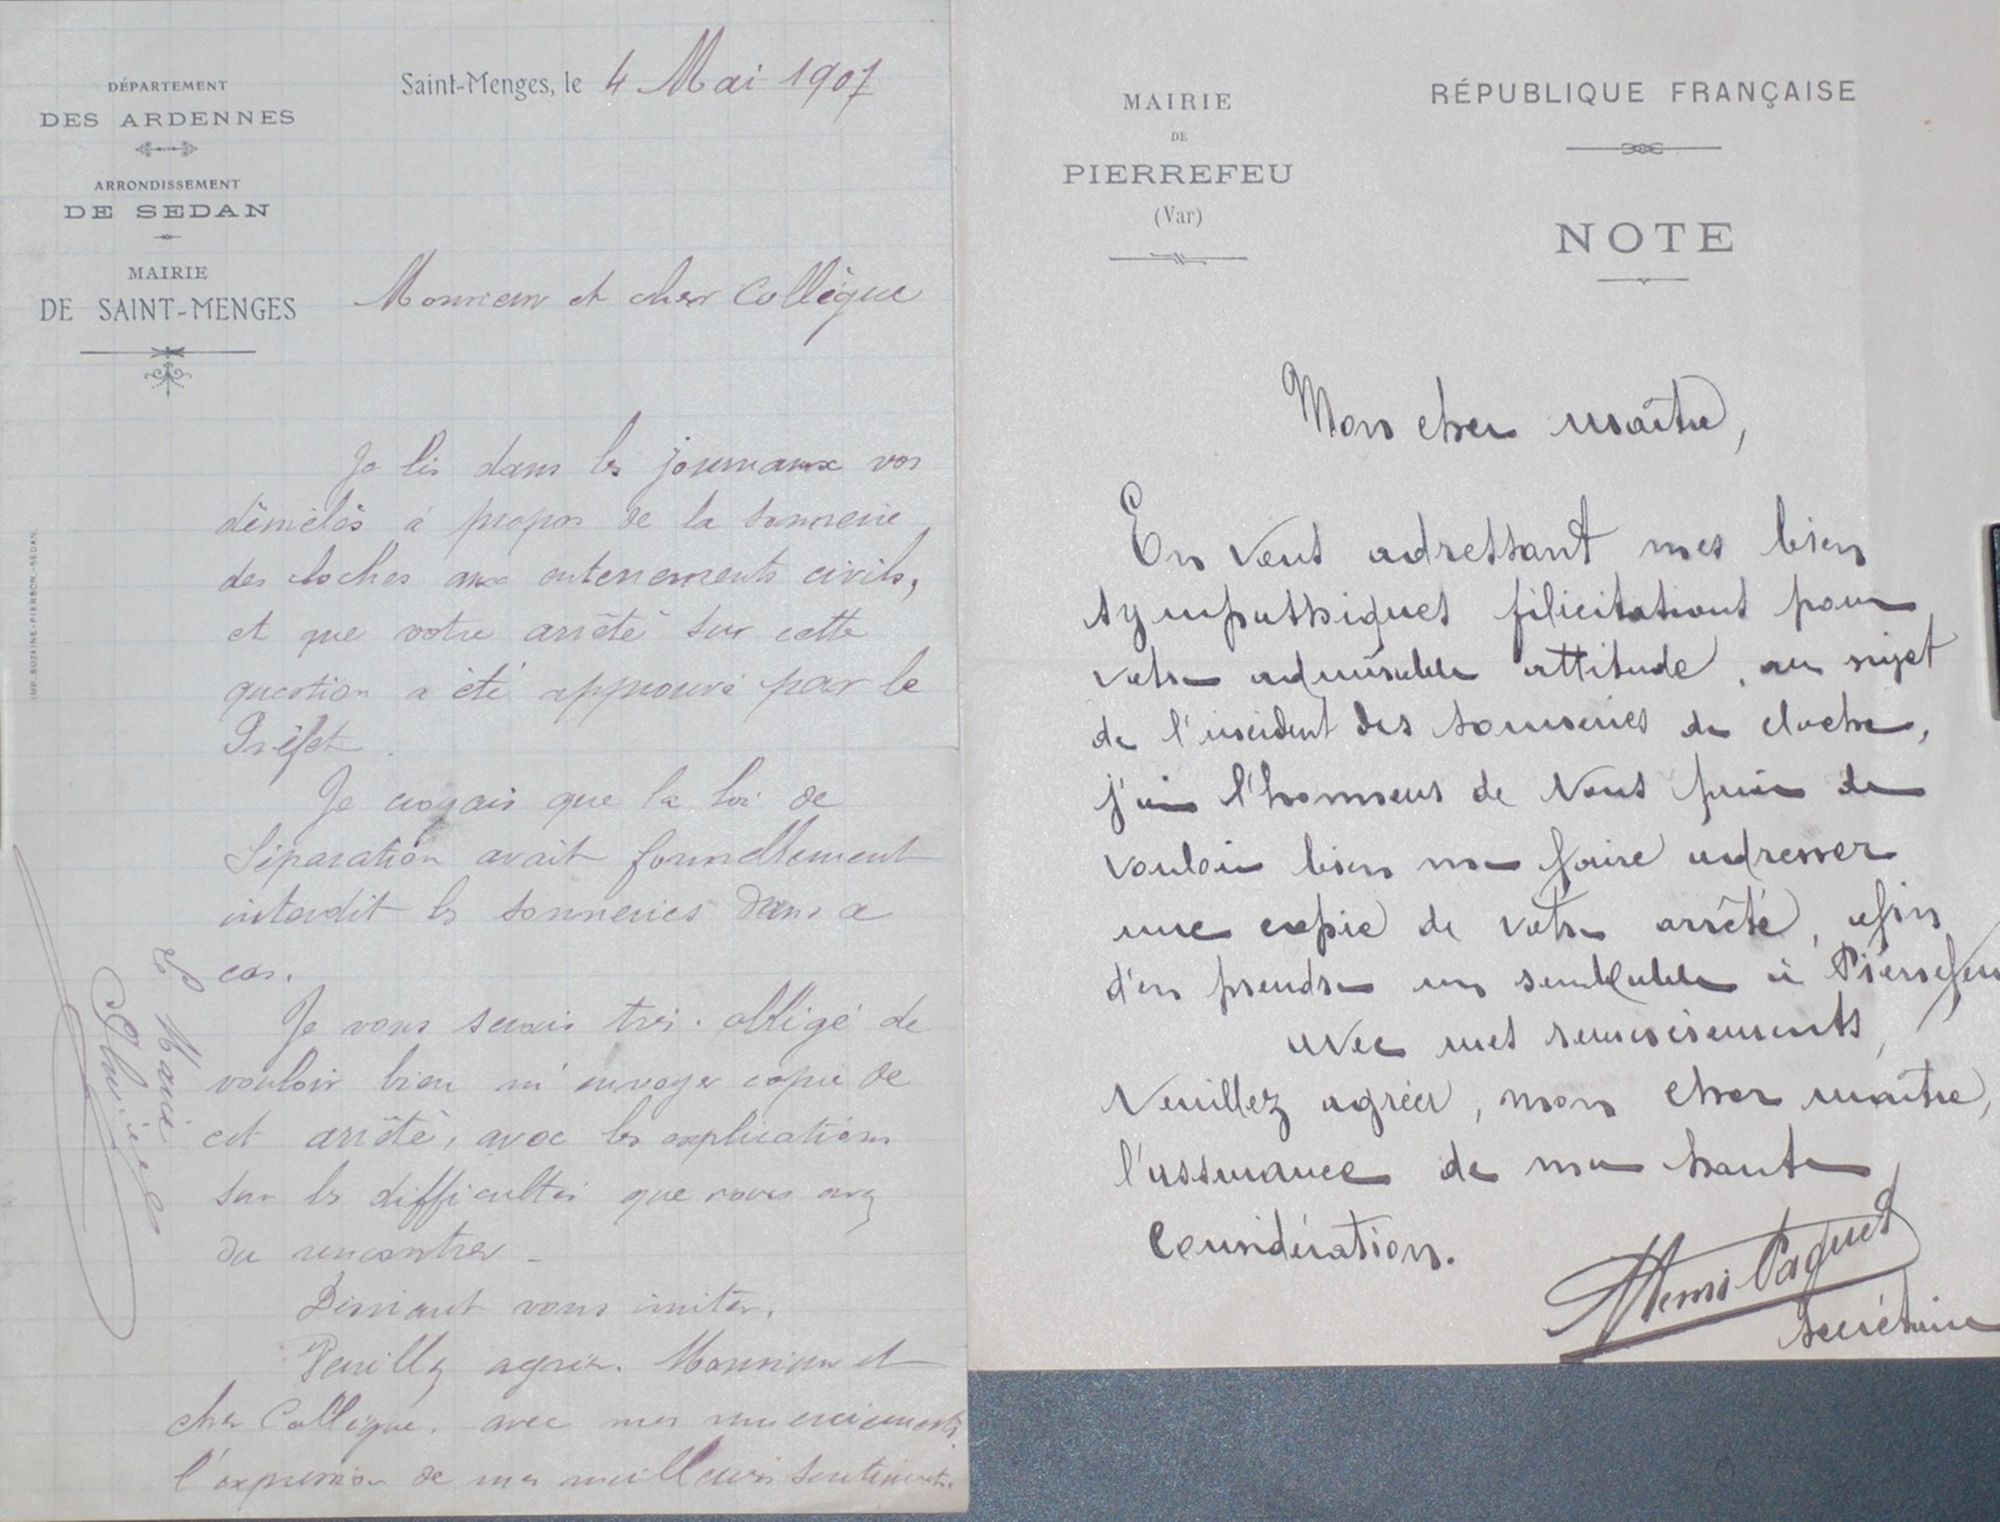 DÉPARTEMENT
DES ARDENNES
ARRONDISSEMENT
DE SEDAN
MAIRIE
DE SAINT-MENGES
IMP. SUZAINE-PIERSON-SEDAN.
Saint-Menges, le 4 Mai 1907
Monsieur et cher Collègue
Je lis dans les journaux vos
démêlés à propos de la sonnerie
des cloches aux enterrements civils,
et que votre arrêté sur cette
question a été approuvé par le
Préfet.
Je croyais que la loi de
Séparation avait formellement
interdit les sonneries dans ce
cas.
Je vous serais très obligé de
vouloir bien m'envoyer copie de
cet arrêté, avec les explications
sur les difficultés que vous avez
du rencontrer –
Désirant vous imiter,
Veuillez agréer, Monsieur et
cher Collègue, avec mes remerciements,
l'expression de mes meilleurs sentiments.
Le Maire
MAIRIE
DE
PIERREFEU
(Var)
RÉPUBLIQUE FRANÇAISE
NOTE
Mon cher maître,
En vous adressant mes bien
sympathiques félicitations pour
votre admirable attitude, au sujet
de l'incident des sonneries de cloche,
j'ai l'honneur de vous prier de
vouloir bien me faire adresser
une copie de votre arrêté, afin
d'en prendre un semblable à Pierrefeu
avec mes remerciements,
Veuillez agréer, mon cher maître,
l'assurance de ma haute
considération.
Henri Paquet
Secrétaire